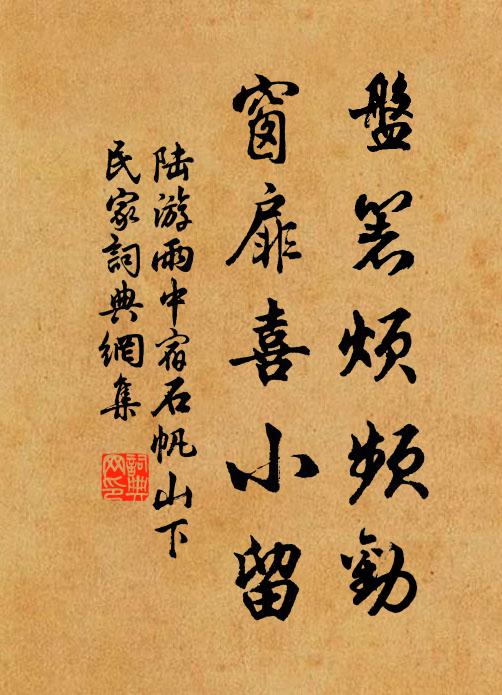 盤箸煩頻勸
窗扉喜小留
陸游雨中宿石帆山下
民家詞典網集
詞典網印